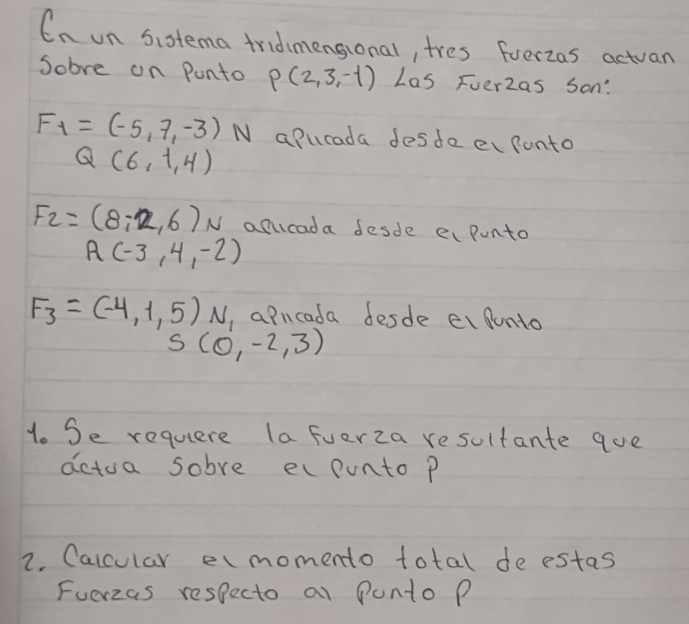 En un sistema tridimensional, tres fuerzas actuan
Sobre un Punto P(2,3,-1) Las Fuerzas son:
F1 = (-5,7,-3) N aplicada desde el Punto
Q (6,1,4)
F2 = (8, 2,6) N aplicada desde el Punto
R (-3,4,-2)
F3 = (-4,1,5) N, aplicada desde el Punto
S (0,-2,3)
1. Se requiere la fuerza resultante que
áctua Sobre el Punto P
2. Calcular el momento total de estas
Fuerzas respecto al Punto P